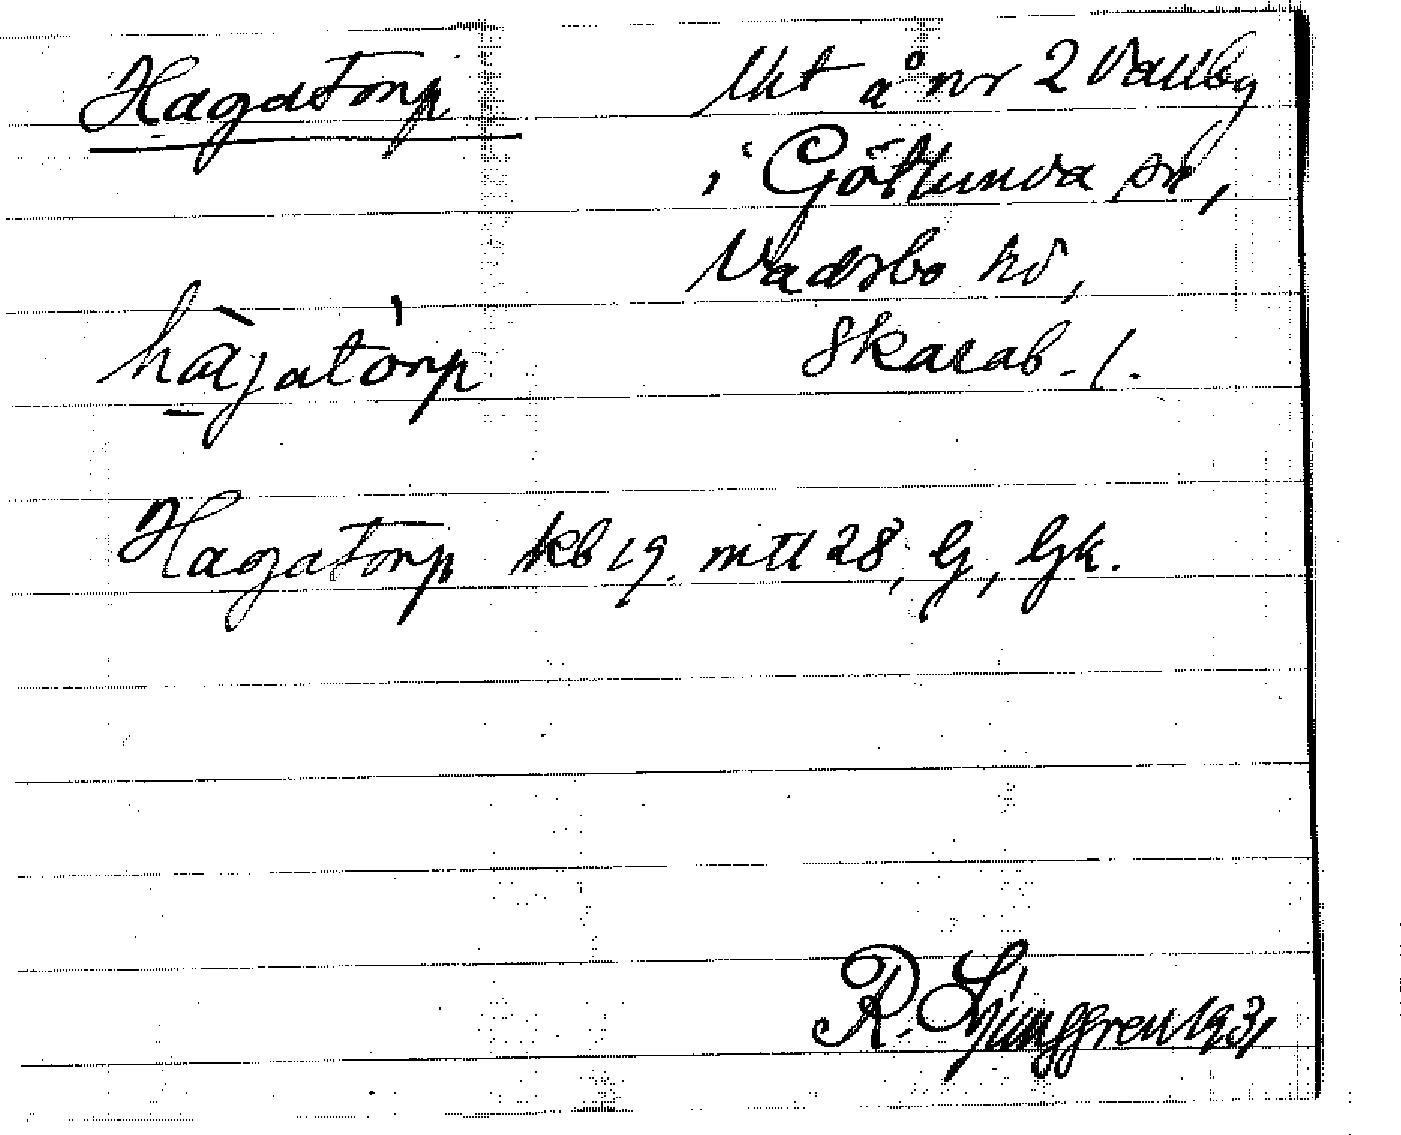 Hagatorp
Ukt å nr 2 Vallby
i Götlunda sn,
Vadsbo hd,
Skarab. l.
hàgatórp
Hagatorp kb 19. mtl 28, G, Gk.
R. Ljunggren 1931